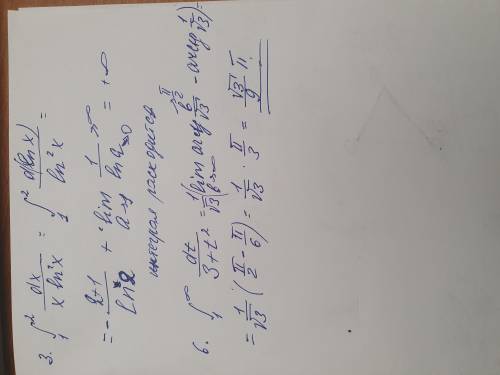 3. ∫₁² dx / (x ln²x) = ∫₁² d(ln x) / ln²x =
= − 1 / ln 2 + lim a→1 1 / ln a →0 →∞ = + ∞
интеграл расходится
6. ∫₁^∞ dt / (3+t²) = 1/√3 (lim b→∞ arctg b/√3 →π/2 − arctg 1/√3) =
= 1/√3 (π/2 − π/6) = 1/√3 · π/3 = √3/9 π